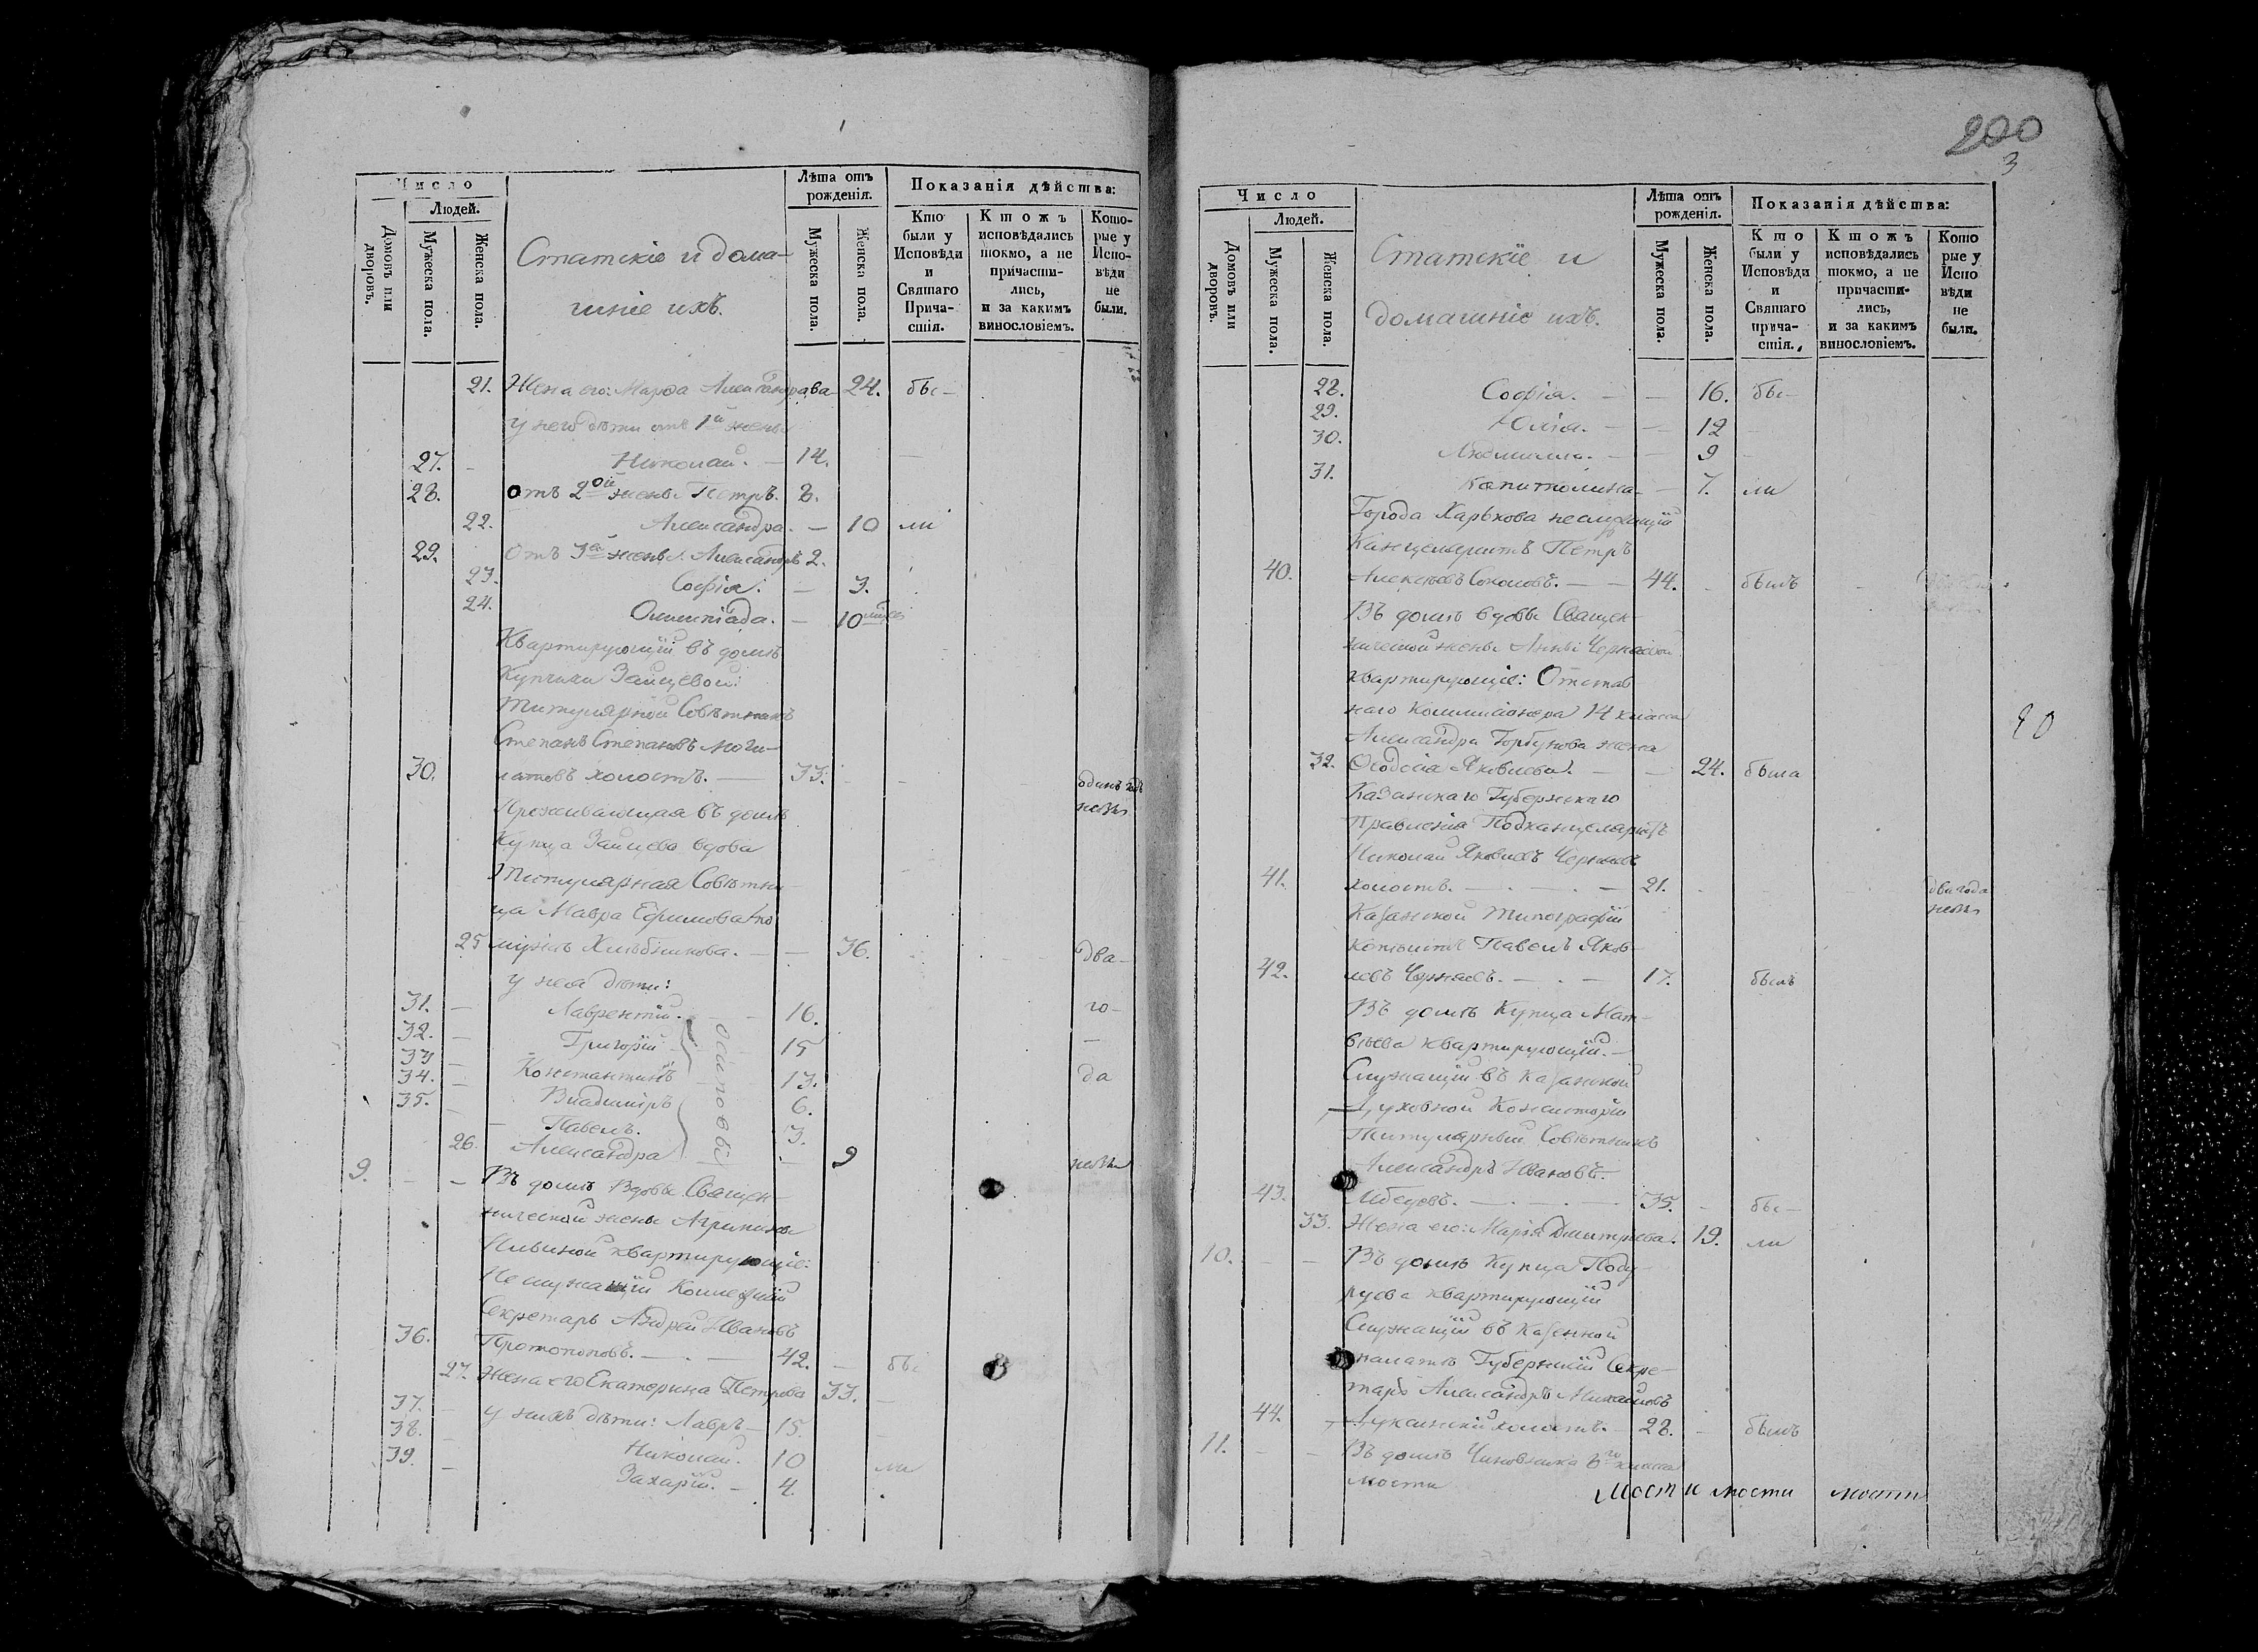 Число
Людей.
Домовъ или дворовъ.
Мужеска пола.
Женска пола.
Статскіе и дома-
шніе ихъ.
Лѣта отъ рожденія.
Мужеска пола.
Женска пола.
Показанія дѣйства:
Кто были у Исповѣди и Святаго Прича-стія.
Ктожъ исповѣдались токмо, а не причасти-лись, и за какимъ винословіемъ.
Кото-рые у Испо-вѣди не были.
21. Жена его: Марѳа Александрова 24. бы-
у него дѣти отъ 1й жены
27. - Николай. - 14.
28. отъ 2ой жены Петръ. 8.
22. Александра. - 10 ли
29. Отъ 3й жены Александръ 2.
23. Софія. - 3.
24. Олимпіада. - 10
Квартирующій въ домѣ
Купчихи Зайцевой:
Титулярной Совѣтникъ
Степанъ Степановъ
30. холостъ. - 33. одинъ годъ
Проживающая въ домѣ
Купца Зайцева вдова
Титулярная Совѣтни-
ца Мавра Ефимова по
25 мужѣ Хлѣбникова. - - 36. два-
у нея дѣти:
31. - Лаврентій. - - 16. го-
32. - Григорій 15 -
33 - Константинъ 13. да
34. - Владиміръ 6.
35. - Павелъ. 3.
26. Александра - 9
Осиповы
9. - - Въ домѣ Вдовы Священ-
нической жены Агрипины
квартирующіе:
Неслужащій Коллежскій
Секретарь Андрей Ивановъ
36. Протопоповъ. - . - 42. - бы
27. Жена его Екатерина Петрова 33. -
37. - у нихъ дѣти: Лавръ - 15.
38. - Николай. 10 ли
39. - Захарій. - 4.
200
3
Число
Людей.
Домовъ или дворовъ.
Мужеска пола.
Женска пола.
Статскіе и
домашніе ихъ.
Лѣта отъ рожденія.
Мужеска пола.
Женска пола.
Показанія дѣйства:
Кто были у Исповѣди и Святаго прича-стія.
Ктожъ исповѣдались токмо, а не причасти-лись, и за какимъ винословіемъ.
Кото рые у Испо вѣди не были.
28. Софія. - - 16. бы-
29. Юлія. - - 12
30. Людмилла. - - 9
31. Капитолина - 7. ли
Города Харькова неслужащій
Канцеляристъ Петръ
40. Алексѣевъ Соколовъ. - - 44. - былъ
Въ домѣ вдовы Священ-
нической жены Анны Черняевой
квартирующіе: Отстав
наго Коммисіонера 14 класса
Александра Горбунова жена
32. Ѳеодосія Яковлева. - - 24. была
Казанскаго Губернскаго
Правленія Подканцеляристъ
Николай Яковлевъ Черняевъ
41. холостъ. - . - . - 21. два года
Казанской Типографіи
Павелъ Яков-
42. левъ Черняевъ. - . - 17. былъ
Въ домѣ Купца Мат-
вѣева квартирующій. -
Служащій въ Казанской
Духовной Консисторіи
Титулярный Совѣтникъ
Александръ Ивановъ
43. Лебедевъ. - . - . - 35. - бы-
33. Жена его: Марія Дмитріева. 19. ли
10. - - Въ домѣ Купца Поду-
руева квартирующій
Служащій въ Казенной
палатѣ Губернскій Секре-
тарь Александръ Михайловъ
44. холостъ. - 28. - былъ
11. - - Въ домѣ Чиновника 6го класса
мости мости мости мости
90